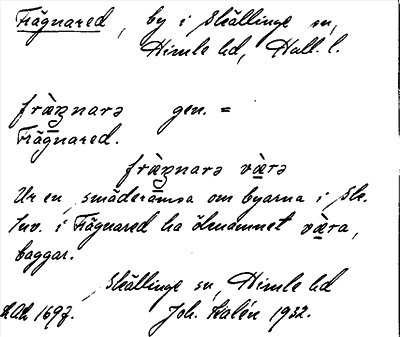 Frägnared, by i Skällinge sn,
Himle hd, Hall. l.
fràŋnarə gen. =
Frägnared.
fràŋnarə væ̀rə
Ur en smäderamsa om byarna i Sk.
Inv. i Frägnared ha öknamnet væ̀ra,
baggar.
Skällinge sn, Himle hd
Joh. Kalén 1932.